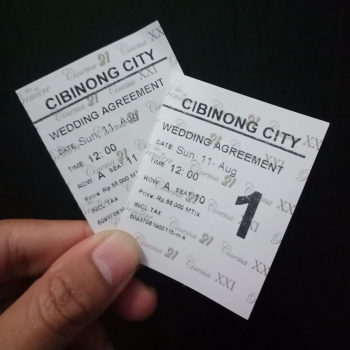 CIBINONG CITY
WEDDING AGREEMENT
DATE Sun, 11, Aug
TIME 12:00
ROW A SEAT 11
INCL.TAX
CIBINONG CITY
WEDDING AGREEMENT
DATE Sun, 11, Aug
TIME 12:00
ROW A SEAT 10
INCL.TAX
1
Cinema 21
Cinema XXI